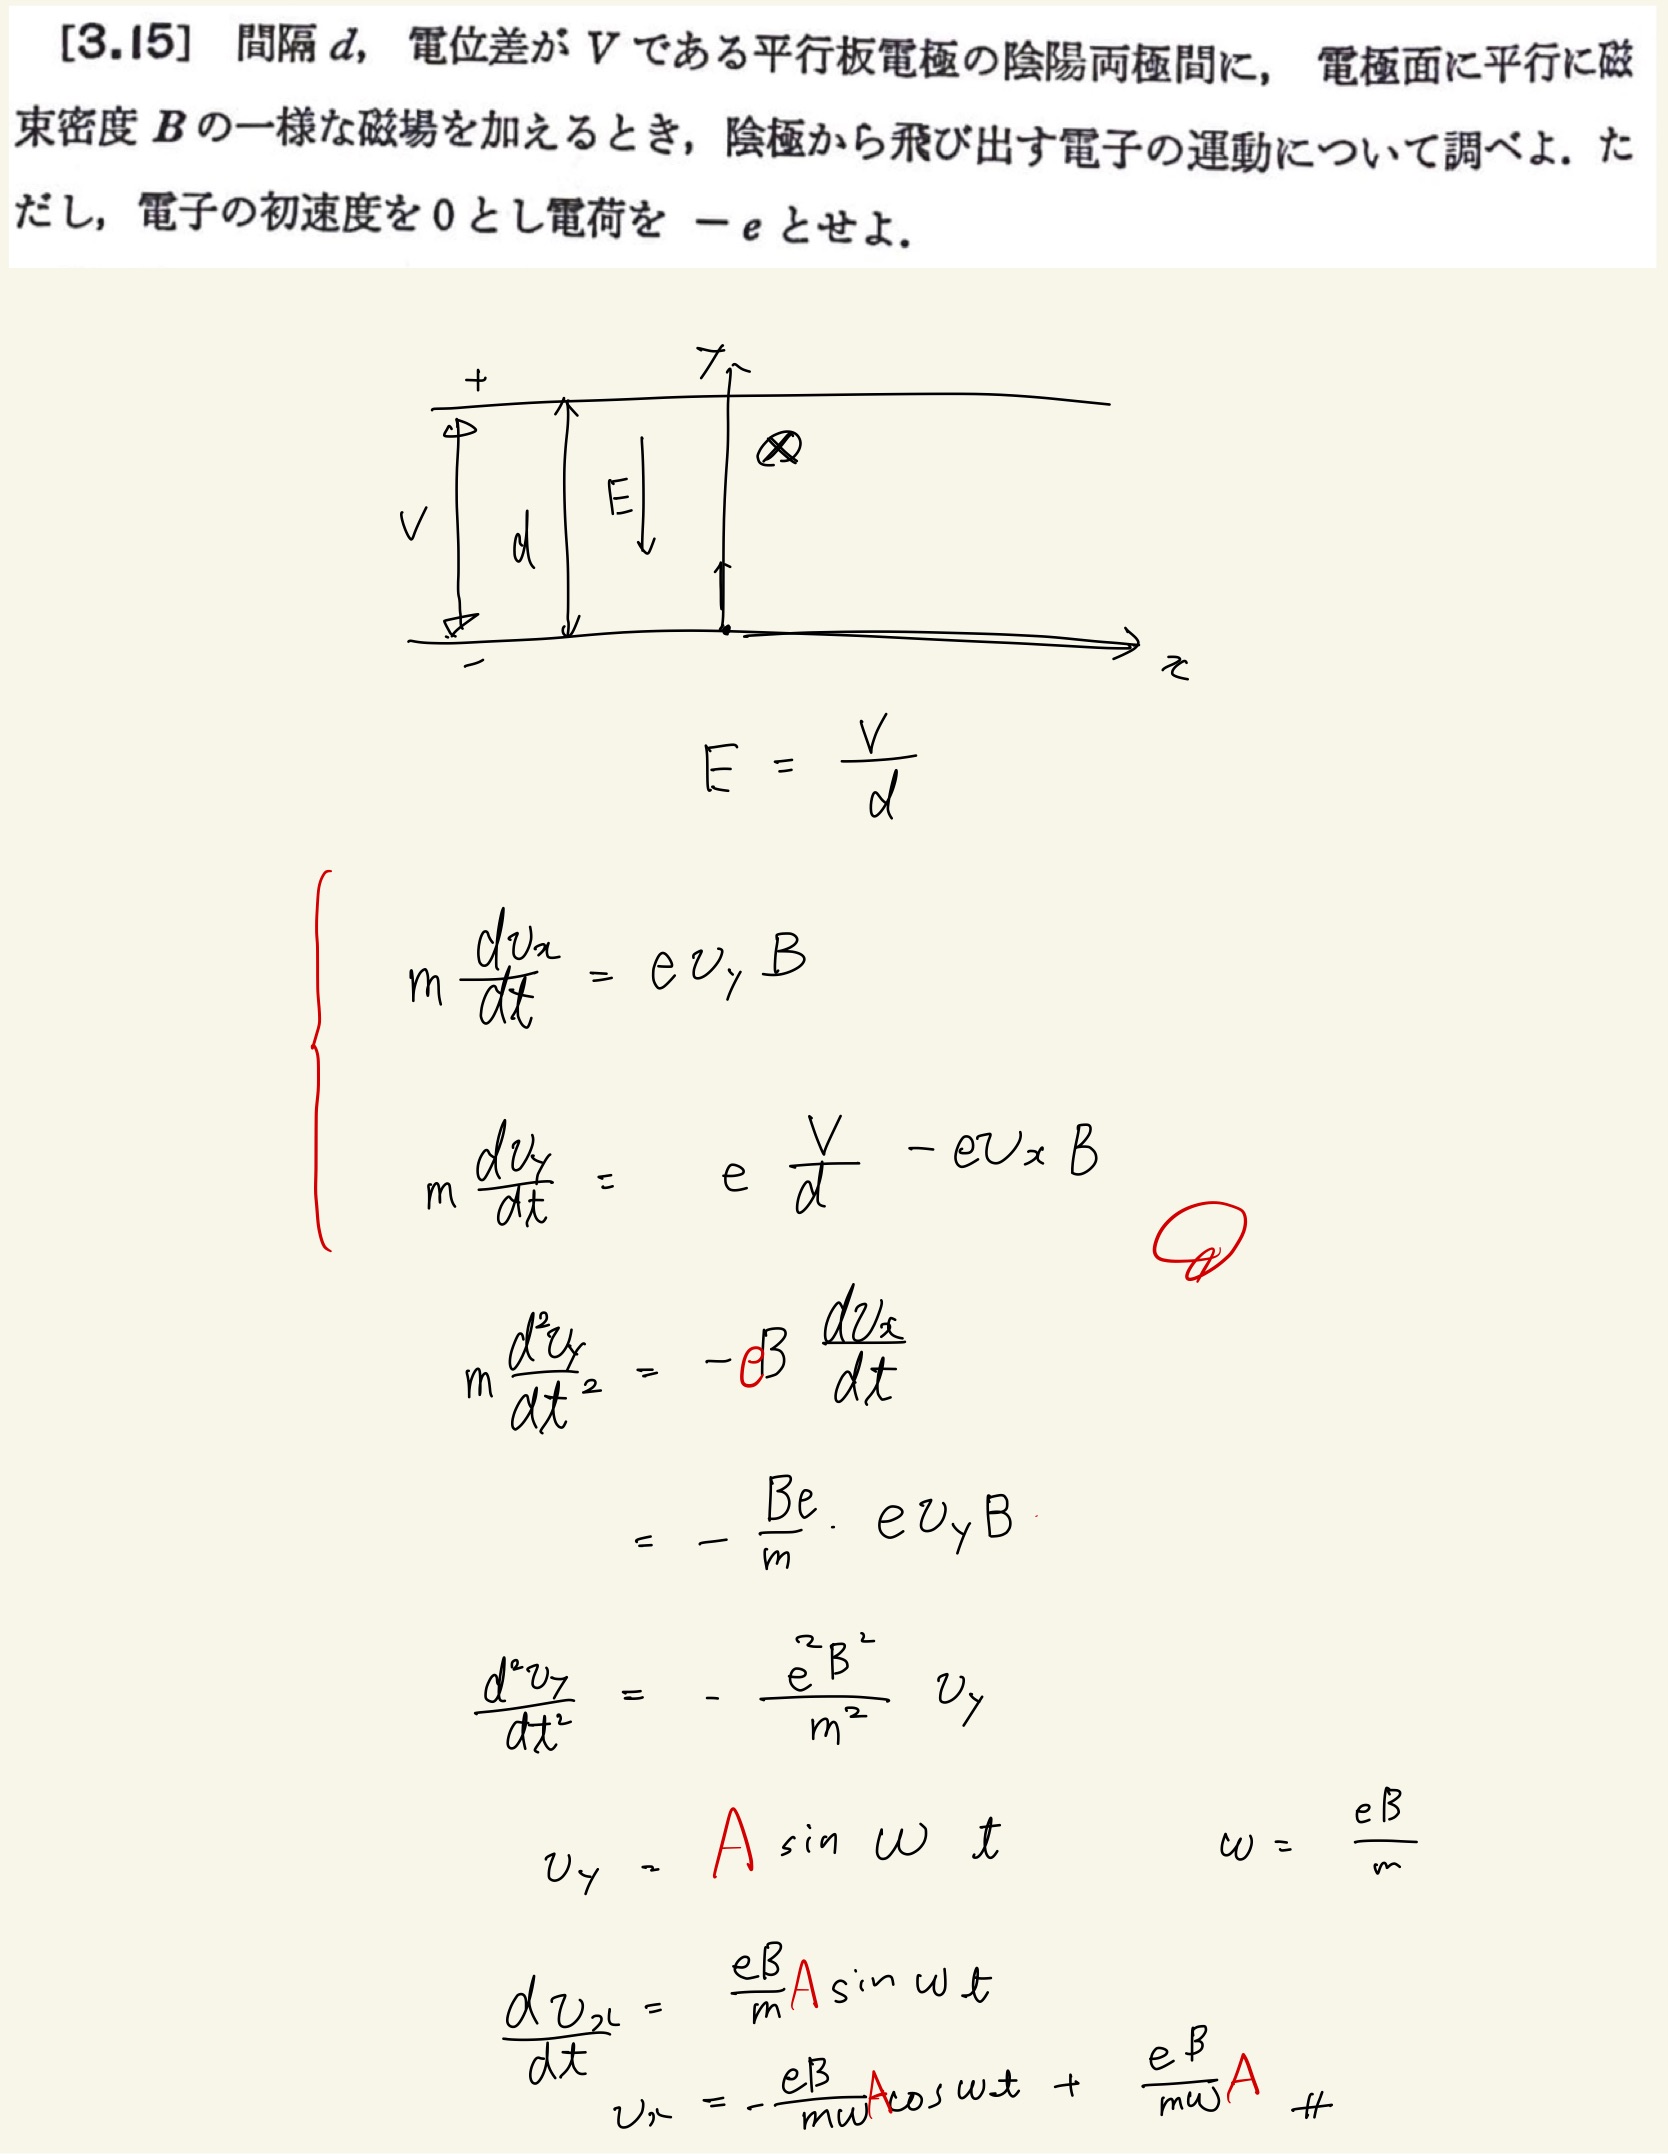 [3.15] 間隔 d, 電位差が V である平行板電極の陰陽両極間に, 電極面に平行に磁
束密度 B の一様な磁場を加えるとき, 陰極から飛び出す電子の運動について調べよ. た
だし, 電子の初速度を 0 とし電荷を −e とせよ.
+
y
V
d
E
⊗
−
x
E = V/d
m dv_x/dt = e v_y B
m dv_y/dt = e V/d − e v_x B
m d²v_y/dt² = −eB dv_x/dt
= − Be/m · e v_y B
d²v_y/dt² = − e²B²/m² v_y
v_y = A sin ω t ω = eB/m
dv_x/dt = eB/m A sin ωt
v_x = − eB/mω A cos ωt + eB/mω A #